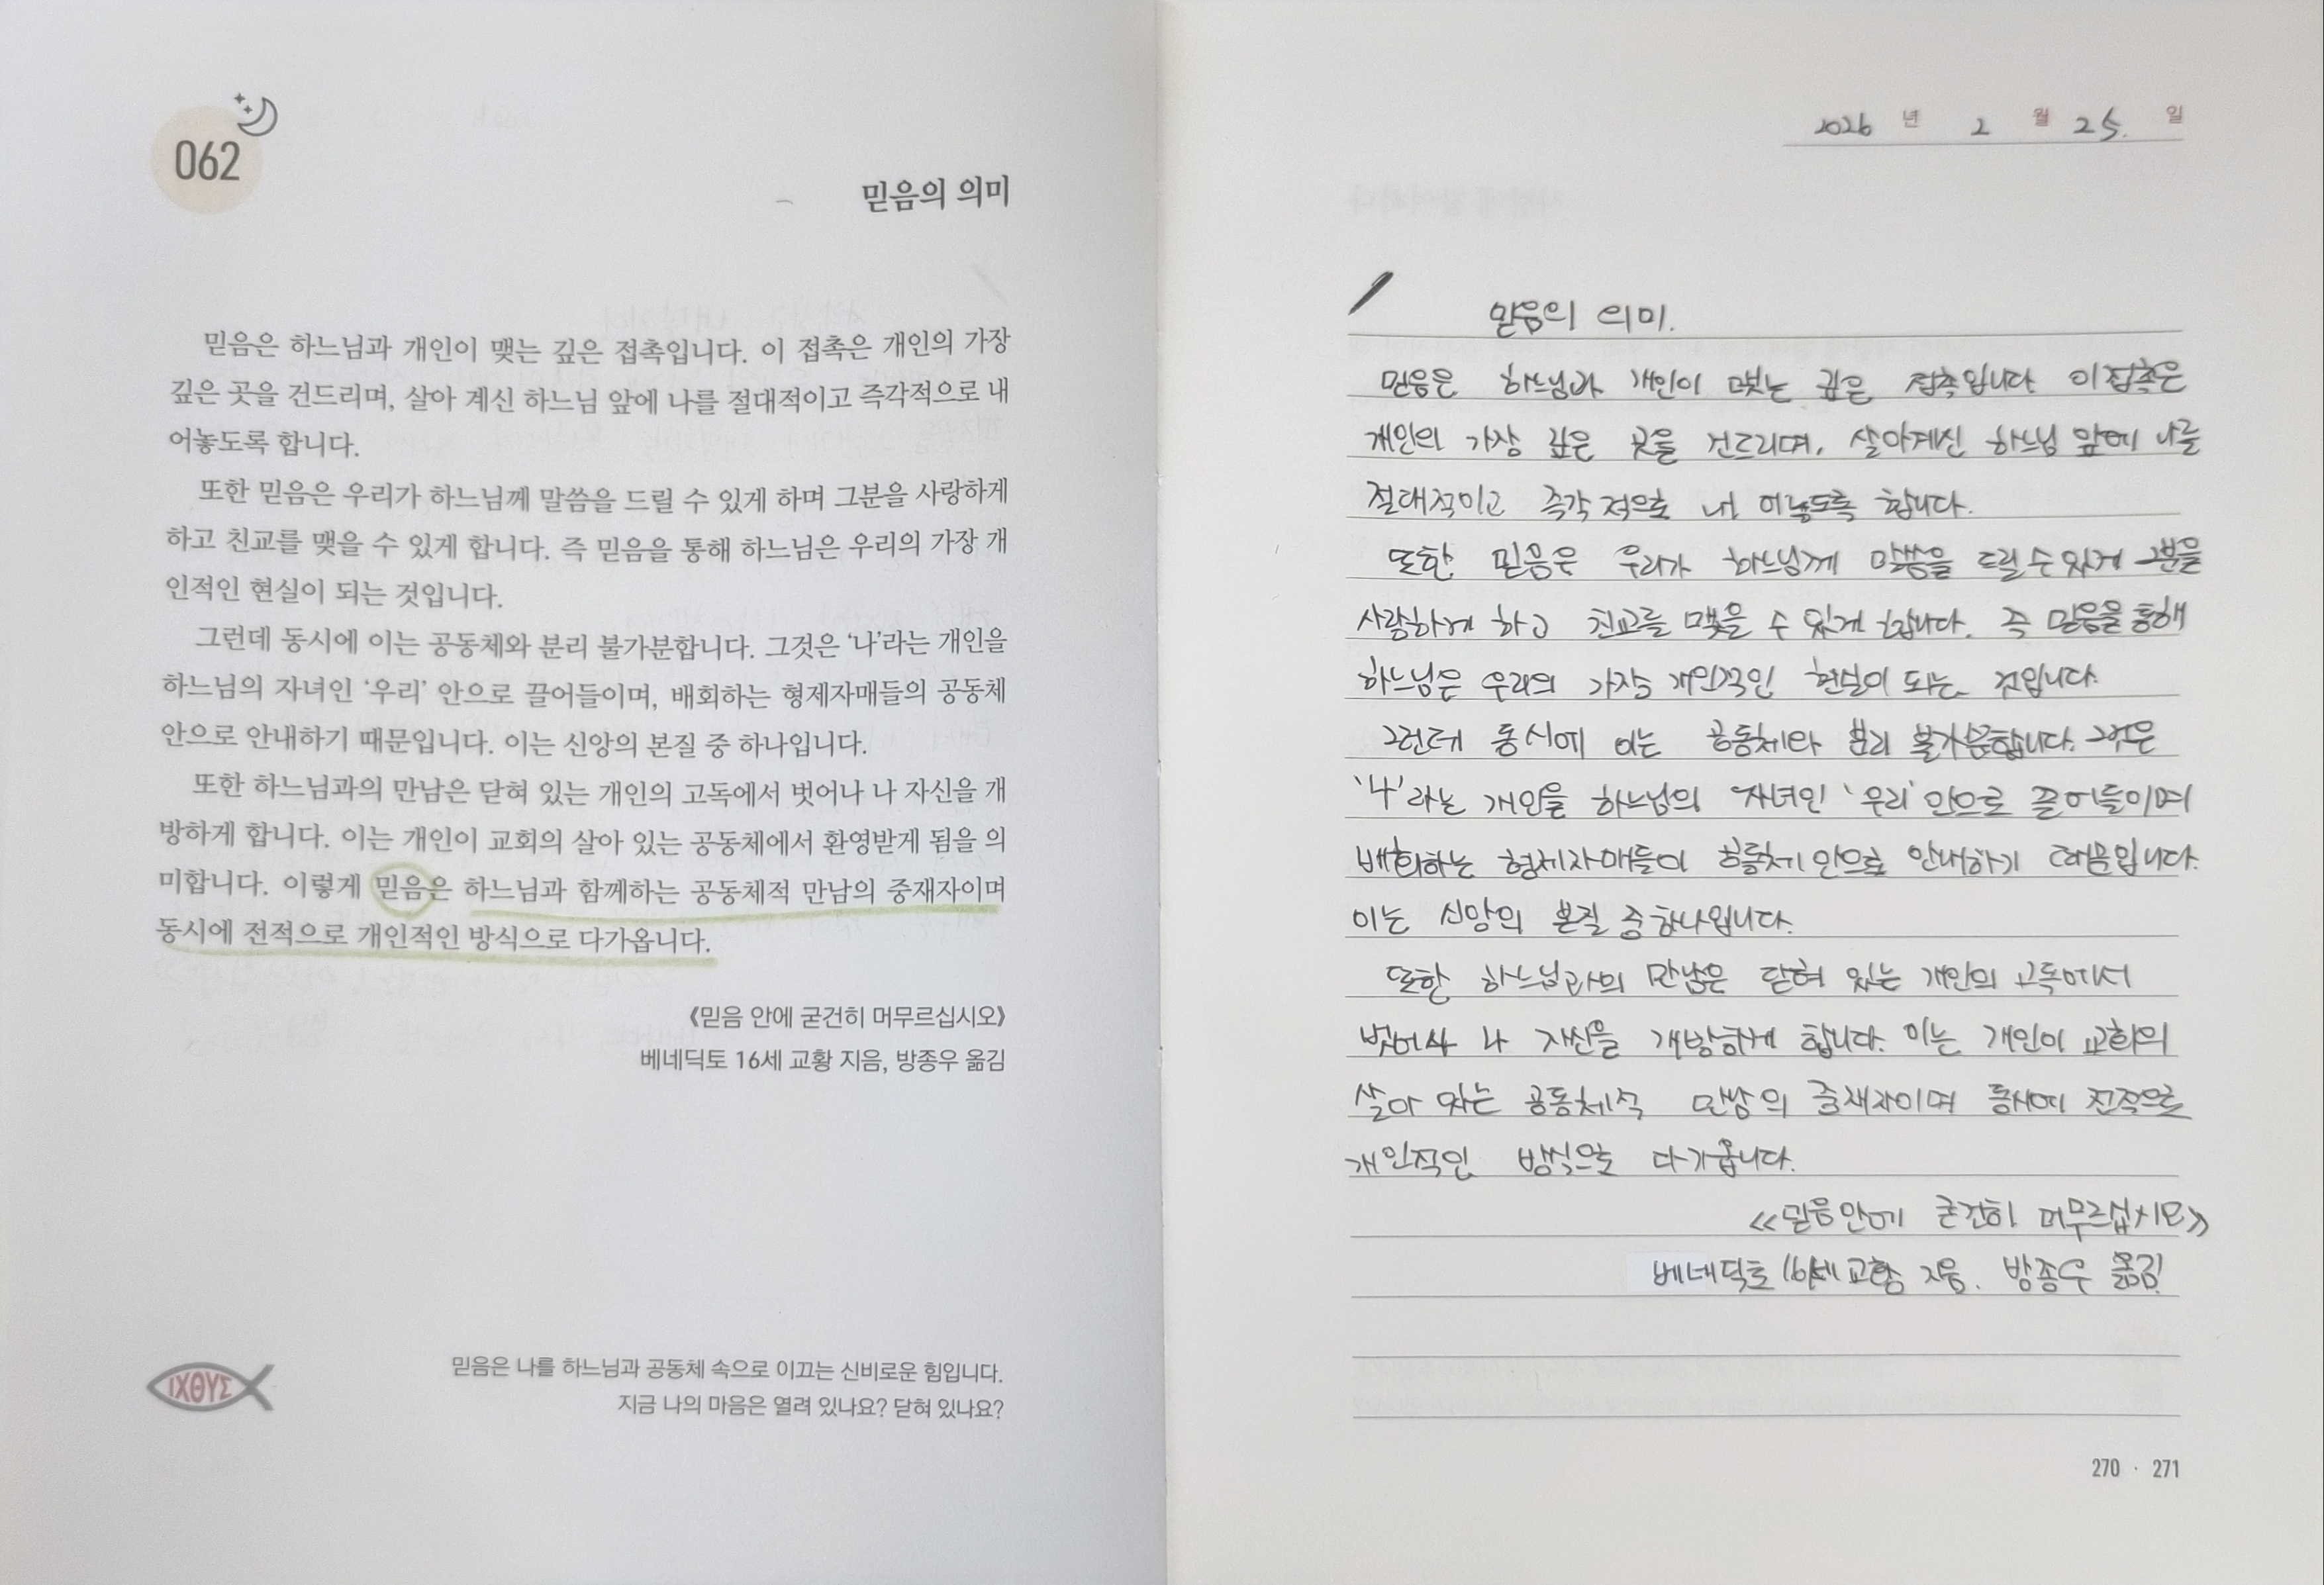 062
믿음의 의미
믿음은 하느님과 개인이 맺는 깊은 접촉입니다. 이 접촉은 개인의 가장
깊은 곳을 건드리며, 살아 계신 하느님 앞에 나를 절대적이고 즉각적으로 내
어놓도록 합니다.
또한 믿음은 우리가 하느님께 말씀을 드릴 수 있게 하며 그분을 사랑하게
하고 친교를 맺을 수 있게 합니다. 즉 믿음을 통해 하느님은 우리의 가장 개
인적인 현실이 되는 것입니다.
그런데 동시에 이는 공동체와 분리 불가분합니다. 그것은 ‘나’라는 개인을
하느님의 자녀인 ‘우리’ 안으로 끌어들이며, 배회하는 형제자매들의 공동체
안으로 안내하기 때문입니다. 이는 신앙의 본질 중 하나입니다.
또한 하느님과의 만남은 닫혀 있는 개인의 고독에서 벗어나 나 자신을 개
방하게 합니다. 이는 개인이 교회의 살아 있는 공동체에서 환영받게 됨을 의
미합니다. 이렇게 믿음은 하느님과 함께하는 공동체적 만남의 중재자이며
동시에 전적으로 개인적인 방식으로 다가옵니다.
《믿음 안에 굳건히 머무르십시오》
베네딕토 16세 교황 지음, 방종우 옮김
ΙΧΘΥΣ
믿음은 나를 하느님과 공동체 속으로 이끄는 신비로운 힘입니다.
지금 나의 마음은 열려 있나요? 닫혀 있나요?
2026 년 2 월 25. 일
믿음의 의미.
믿음은 하느님과 개인이 맺는 깊은 접촉입니다 이 접촉은
개인의 가장 깊은 곳을 건드리며, 살아계신 하느님 앞에 나를
절대적이고 즉각적으로 내 어놓도록 합니다.
또한 믿음은 우리가 하느님께 말씀을 드릴 수 있게 그분을
사랑하게 하고 친교를 맺을 수 있게 합니다. 즉 믿음을 통해
하느님은 우리의 가장 개인적인 현실이 되는 것입니다.
그런데 동시에 이는 공동체와 분리 불가분합니다. 그것은
'나'라는 개인을 하느님의 자녀인 '우리' 안으로 끌어들이며
배회하는 형제자매들의 공동체 안으로 안내하기 때문입니다.
이는 신앙의 본질 중 하나입니다.
또한 하느님과의 만남은 닫혀 있는 개인의 고독에서
벗어나 나 자신을 개방하게 합니다. 이는 개인이 교회의
살아 있는 공동체적 만남의 중재자이며 동시에 전적으로
개인적인 방식으로 다가옵니다.
《믿음 안에 굳건히 머무르십시오》
베네딕토 16세 교황 지음. 방종우 옮김
270 · 271